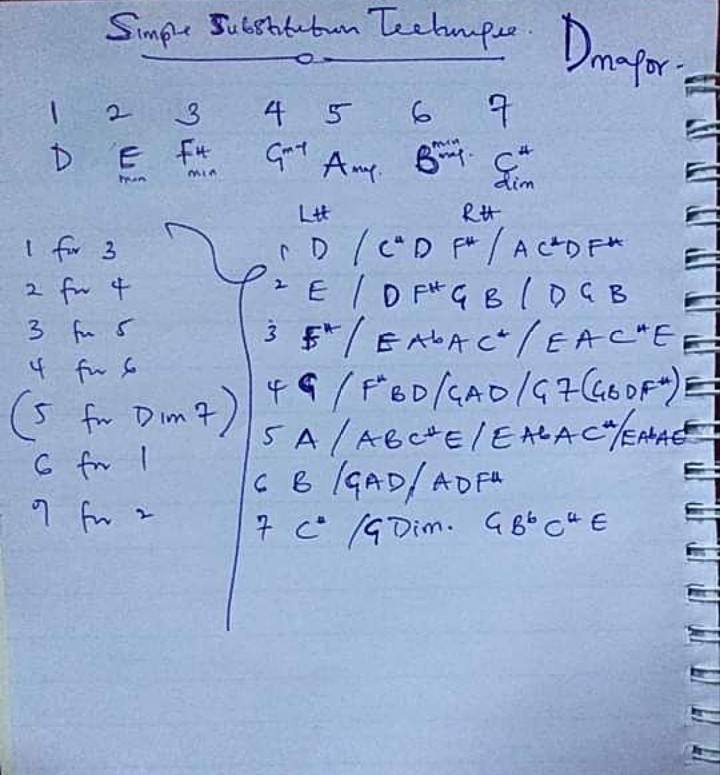 Simple Substitution Technique.
Dmajor.
1 2 3 4 5 6 7
D E min F# min G maj A maj. B min C# dim
LH RH
1 for 3
2 for 4
3 for 5
4 for 6
(5 for Dim 7)
6 for 1
7 for 2
1 D / C# D F# / A C# D F#
2 E / D F# G B / D G B
3 F# / E Ab A C# / E A C# E
4 G / F# B D / G A D / G 7 (G B D F#)
5 A / A B C# E / E Ab A C# / E Ab A E
6 B / G A D / A D F#
7 C# / G Dim. G Bb C# E